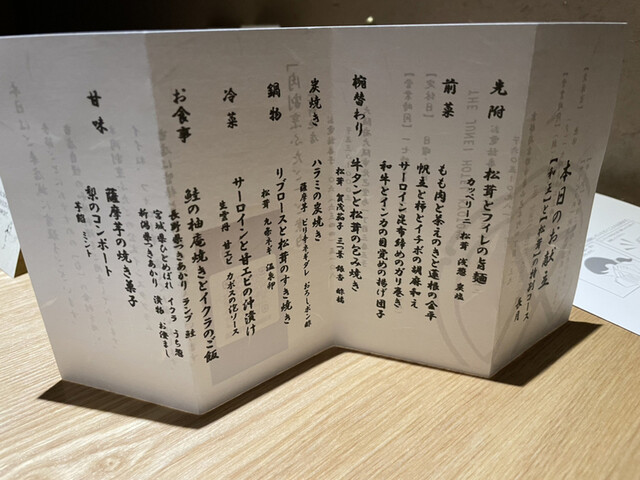 本日のお献立
【和牛】と【松茸】の特別コース
長月
先附
松茸とフィレの旨麺
カッペリーニ 松茸 浅葱
前菜
もも肉と茶えのきと蓮根の金平
帆立と柿とイチボの胡麻和え
サーロイン昆布締めのガリ巻き
和牛とインカの目覚めの揚げ団子
椀替わり
牛タンと松茸の包み焼き
松茸 賀茂茄子 三つ葉 銀杏 酢橘
炭焼き
ハラミの炭焼き
薩摩芋 ピリ辛ネギダレ おろしポン酢
鍋物
リブロースと松茸のすき焼き
松茸 九条ネギ 温泉卵
冷菜
サーロインと甘エビの汁漬け
生雲丹 甘エビ カボスの泡ソース
お食事
鮭の柚庵焼きとイクラのご飯
長野県つきあかり ランプ 鮭
宮城県ひとめぼれ イクラ
新潟県つきあかり 漬物
甘味
薩摩芋の焼き菓子
梨のコンポート
ミント